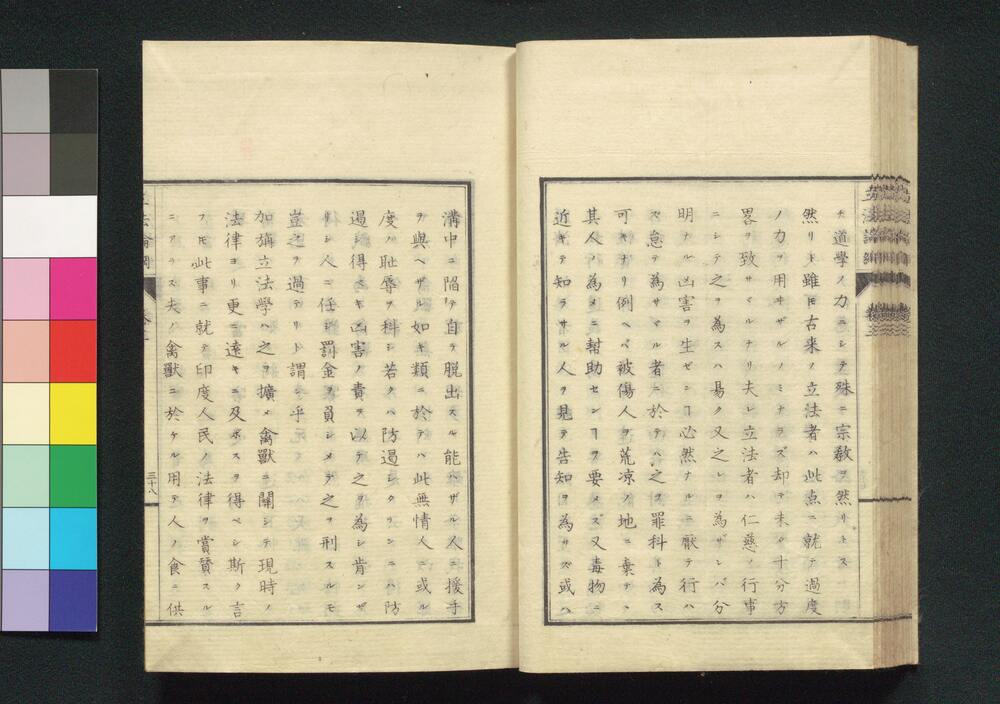 ナ道學ノ力ニシテ殊ニ宗教ヲ然リトス
然リト雖𪜈古来ノ立法者ハ此点ニ就テ過度
ノ力ヲ用ヰザルノミナラズ却テ未タ十分方
畧ヲ致サヾルナリ夫レ立法者ハ仁慈ノ行事
ニシテ之ヲ為スハ易ク又之レヲ為ザレバ分
明ナル凶害ヲ生ゼシヿ必然ナルニ厭テ行ハ
ズ怠テ為サヾル者ニ於テハ之ヲ罪科ト為ス
可キナリ例ヘバ被傷人ヲ荒凉ノ地ニ棄テヽ
其人ノ為メニ幇助センヿヲ要メズ又毒物ニ
近キテ知ラサル人ヲ見テ告知ヲ為サズ或ハ
溝中ニ陷テ自ラ脱出スル能ハザル人ニ援手
ヲ與ヘザル如キ類ニ於テハ此無情人ニ或ル
度ノ恥辱ヲ科シ若クハ防遏シクヲンニハ防
遏シ得ベキ凶害ノ責ヲ以テ之ヲ為シ肯ンザ
リシ人ニ任シ罰金ヲ負シメテ之ヲ刑スルモ
豈之ヲ過テリト謂ン乎
加旃立法學ハ之ヲ擴メ禽獸ニ關シテ現時ノ
法律ヨリ更ニ遠キニ及ボスヲ得ベシ斯ク言
フ𪜈此事ニ就テ印度人民ノ法律ヲ賞賛スル
ニアラズ夫ノ禽獸ニ於ケル用テ人ノ食ニ供
三十八